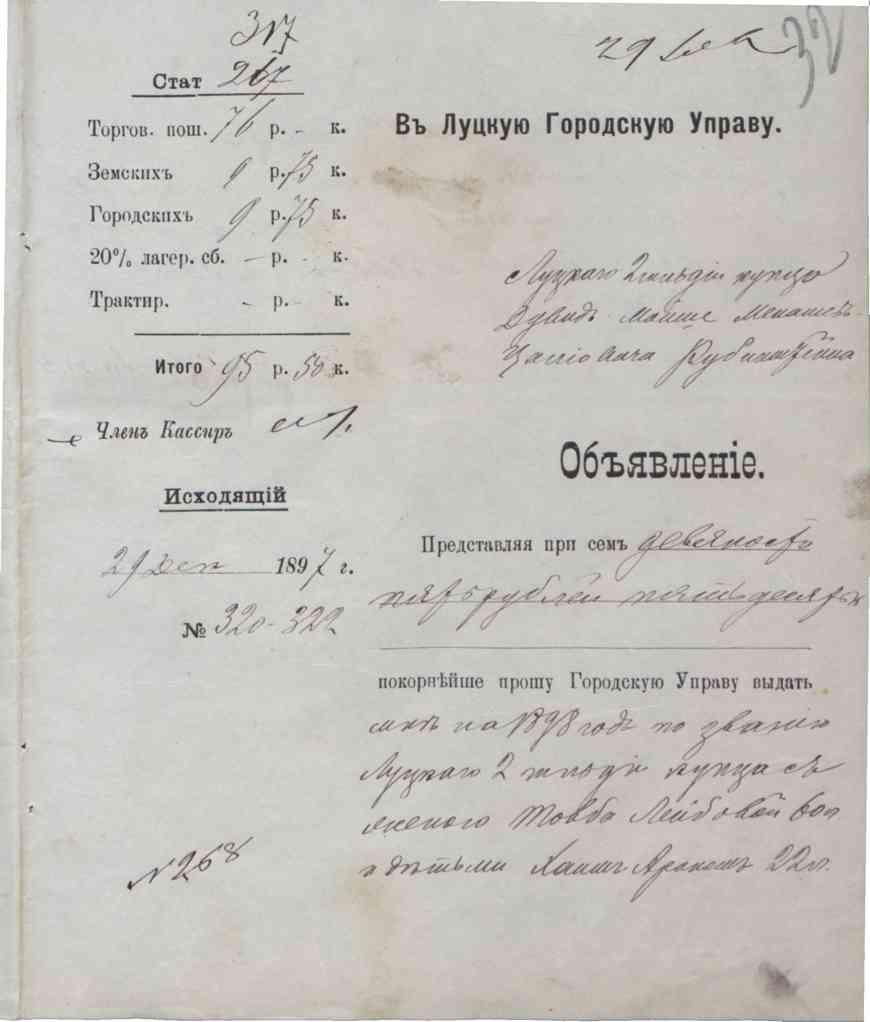 317
Стат 267
Торгов. пош. 76 р. - к.
Земскихъ 9 р. 75 к.
Городскихъ 9 р. 75 к.
20% лагер. сб. - р. - к.
Трактир. - р. - к.
Итого 95 р. 50 к.
Членъ Кассиръ
Исходящій
29 Дек 1897 г.
№ 320-322
№ 268
29 Дек
32
Въ Луцкую Городскую Управу.
Луцкаго 2 гильдіи купца
Дувидъ Мойше
Рубинштейна
Объявленіе.
Представляя при семъ девяносто
пять рублей пятьдесятъ к
покорнѣйше прошу Городскую Управу выдать
мнѣ на 1898 годъ по званію
Луцкаго 2 гильдіи купца съ
женою Товба Лейбовой 60 л
и дѣтьми Хаимъ Арономъ 22 л.